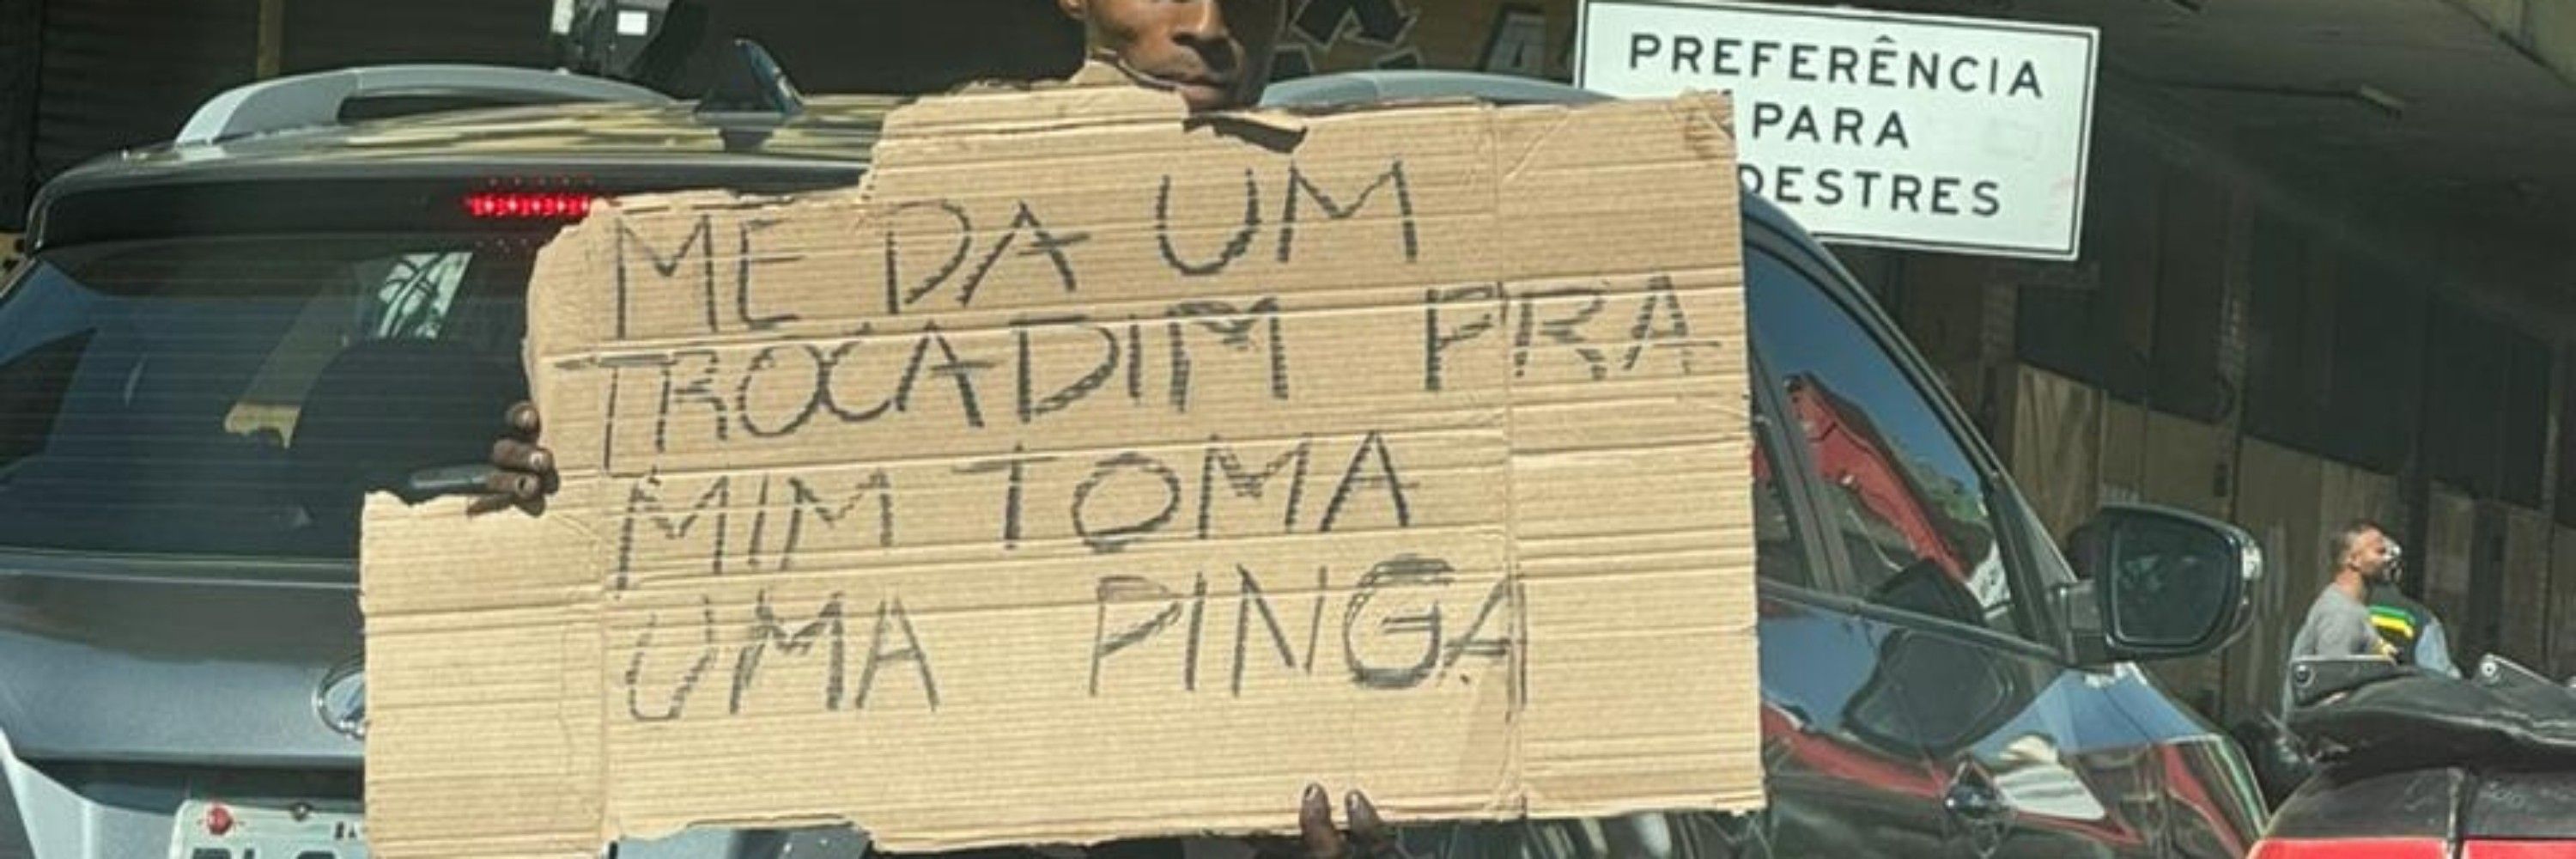 PREFERÊNCIA
PARA
DESTRES
ME DA UM
TROCADIM PRA
MIM TOMA
UMA PINGA